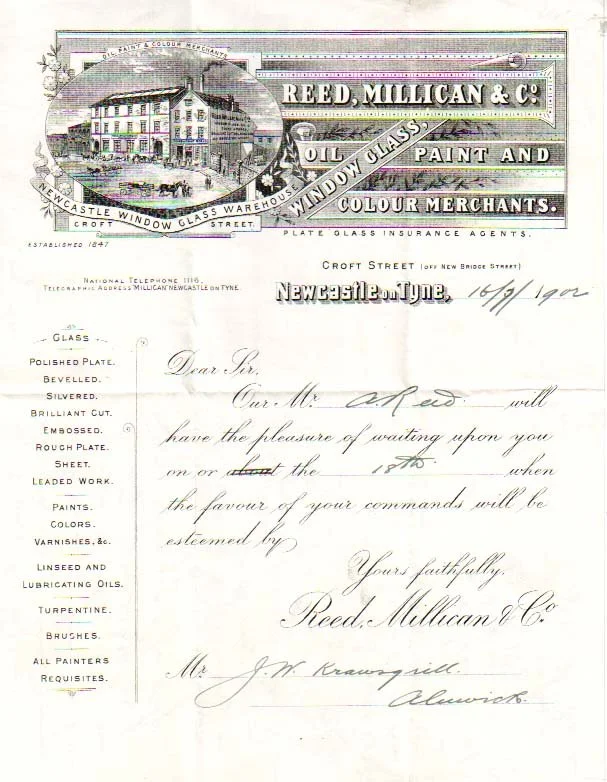 OIL PAINT & COLOUR MERCHANTS
REED, MILLICAN & Co
WINDOW GLASS,
OIL PAINT AND
COLOUR MERCHANTS.
NEWCASTLE WINDOW GLASS WAREHOUSE
CROFT STREET.
PLATE GLASS INSURANCE AGENTS.
ESTABLISHED 1847
CROFT STREET (OFF NEW BRIDGE STREET)
NATIONAL TELEPHONE 1116.
TELEGRAPHIC ADDRESS "MILLICAN" NEWCASTLE ON TYNE.
Newcastle on Tyne, 16/7/1902
GLASS
POLISHED PLATE.
BEVELLED.
SILVERED.
BRILLIANT CUT.
EMBOSSED.
ROUGH PLATE.
SHEET.
LEADED WORK.
PAINTS.
COLORS.
VARNISHES, &c.
LINSEED AND
LUBRICATING OILS.
TURPENTINE.
BRUSHES.
ALL PAINTERS
REQUISITES.
Dear Sir,
Our Mr A. Reed will
have the pleasure of waiting upon you
on or about the 18th when
the favour of your commands will be
esteemed by
Yours faithfully,
Reed, Millican & Co
Mr J. W. Krausgrill
Alnwick